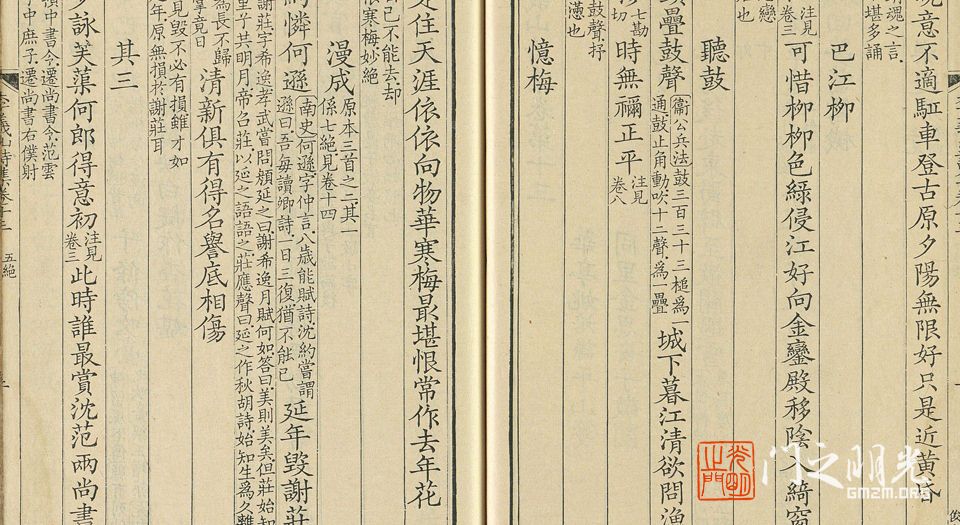 意不適駈車登古原夕陽無限好只是近黃昏
魂之言
堪多誦
巴江柳
注見
卷三
可惜柳柳色綠侵江好向金鑾殿移陰入綺窗
戀
也
聽鼓
疊鼓聲
衞公兵法鼓三百三十三槌爲一
通鼓止角動吹十二聲爲一疊
城下暮江清欲問漁
七勘
切
時無禰正平
注見
卷八
鼓聲抒
懣也
憶梅
定住天涯依依向物華寒梅最堪恨常作去年花
已不能去却
依寒梅妙絕
漫成
原本三首之二其一
係七絕見卷十四
憐何遜
南史何遜字仲言八歲能賦詩沈約嘗謂
遜曰吾每讀卿詩一日三復猶不能已
延年毀謝莊
謝莊字希逸孝武嘗問顏延之曰謝希逸月賦何如答曰美則美矣但莊始知
里子共明月帝召莊以延之語語之莊應聲曰延之作秋胡詩始知生爲久離
爲長不歸
掌竟日
清新俱有得名譽底相傷
見毀不必有損雖才如
年原無損於謝莊耳
其三
夕詠芙蕖何郎得意初
注見
卷三
此時誰最賞沈范兩尚書
中書令遷尚書令范雲
中庶子遷尚書右僕射
李義山詩集卷十三
五絕
光明之門
門之明光
GMZM.ORG